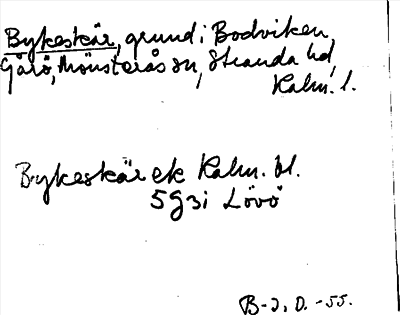 Bykeskär, grund i Bodviken,
Gårö, Mönsterås sn, Stranda hd,
Kalm. l.
Bykeskär ek Kalm. bl.
5 g 3 i Lövö
B-J, D. -55.